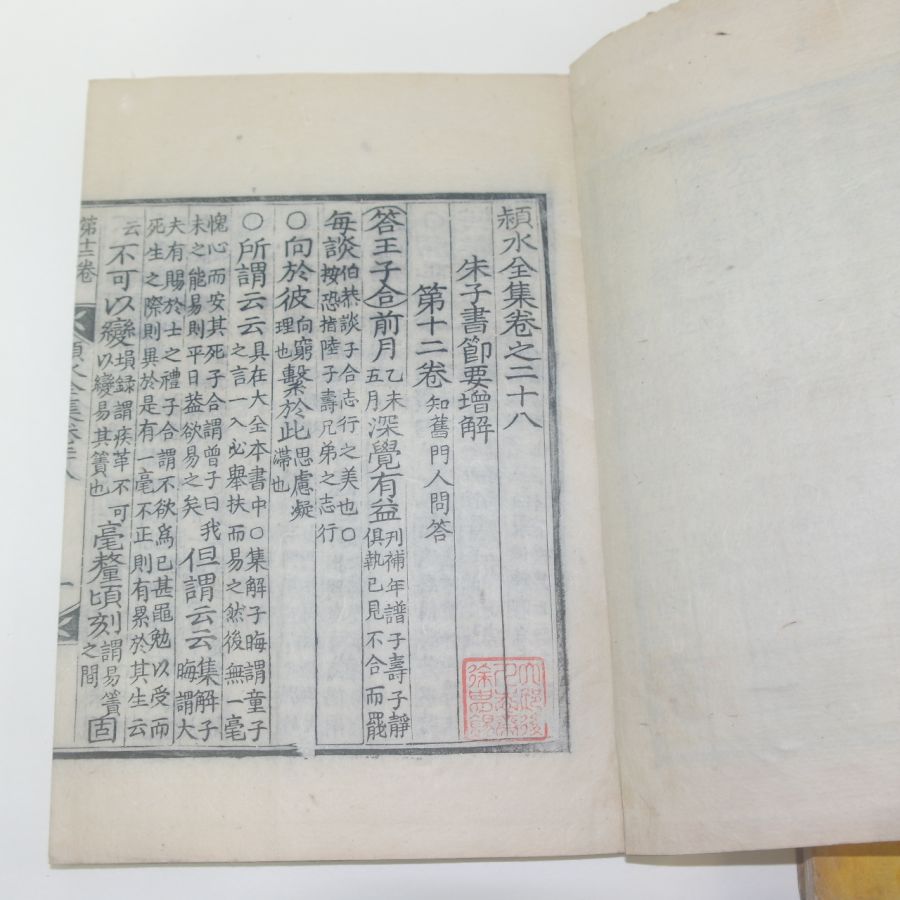 頴水全集卷之二十八
朱子書節要增解
第十二卷 知舊門人問答
答王子合 前月 乙未五月 深覺有益 刊補年譜子壽子靜俱執已見不合而罷
每談 伯恭談子合志行之美也○按恐指陸子壽兄弟之志行
○向於彼 向窮理也 繫於此 思慮凝滯也
○所謂云云 具在大全本書中○集解子晦謂童子之言一入必舉扶而易之然後無一毫
愧心而安其死子合謂曾子曰我未之能易則平日益欲易之矣 但謂云云 集解子晦謂大
夫有賜於士之禮子合謂不欲爲已甚黽勉以受而死生之際則異於是有一毫不正則有累於其生云
云 不可以變 塤録謂疾革不可以變易其簀也 毫釐頃刻 謂易簀之間 固
第十二卷 頴水全集卷二十八 一